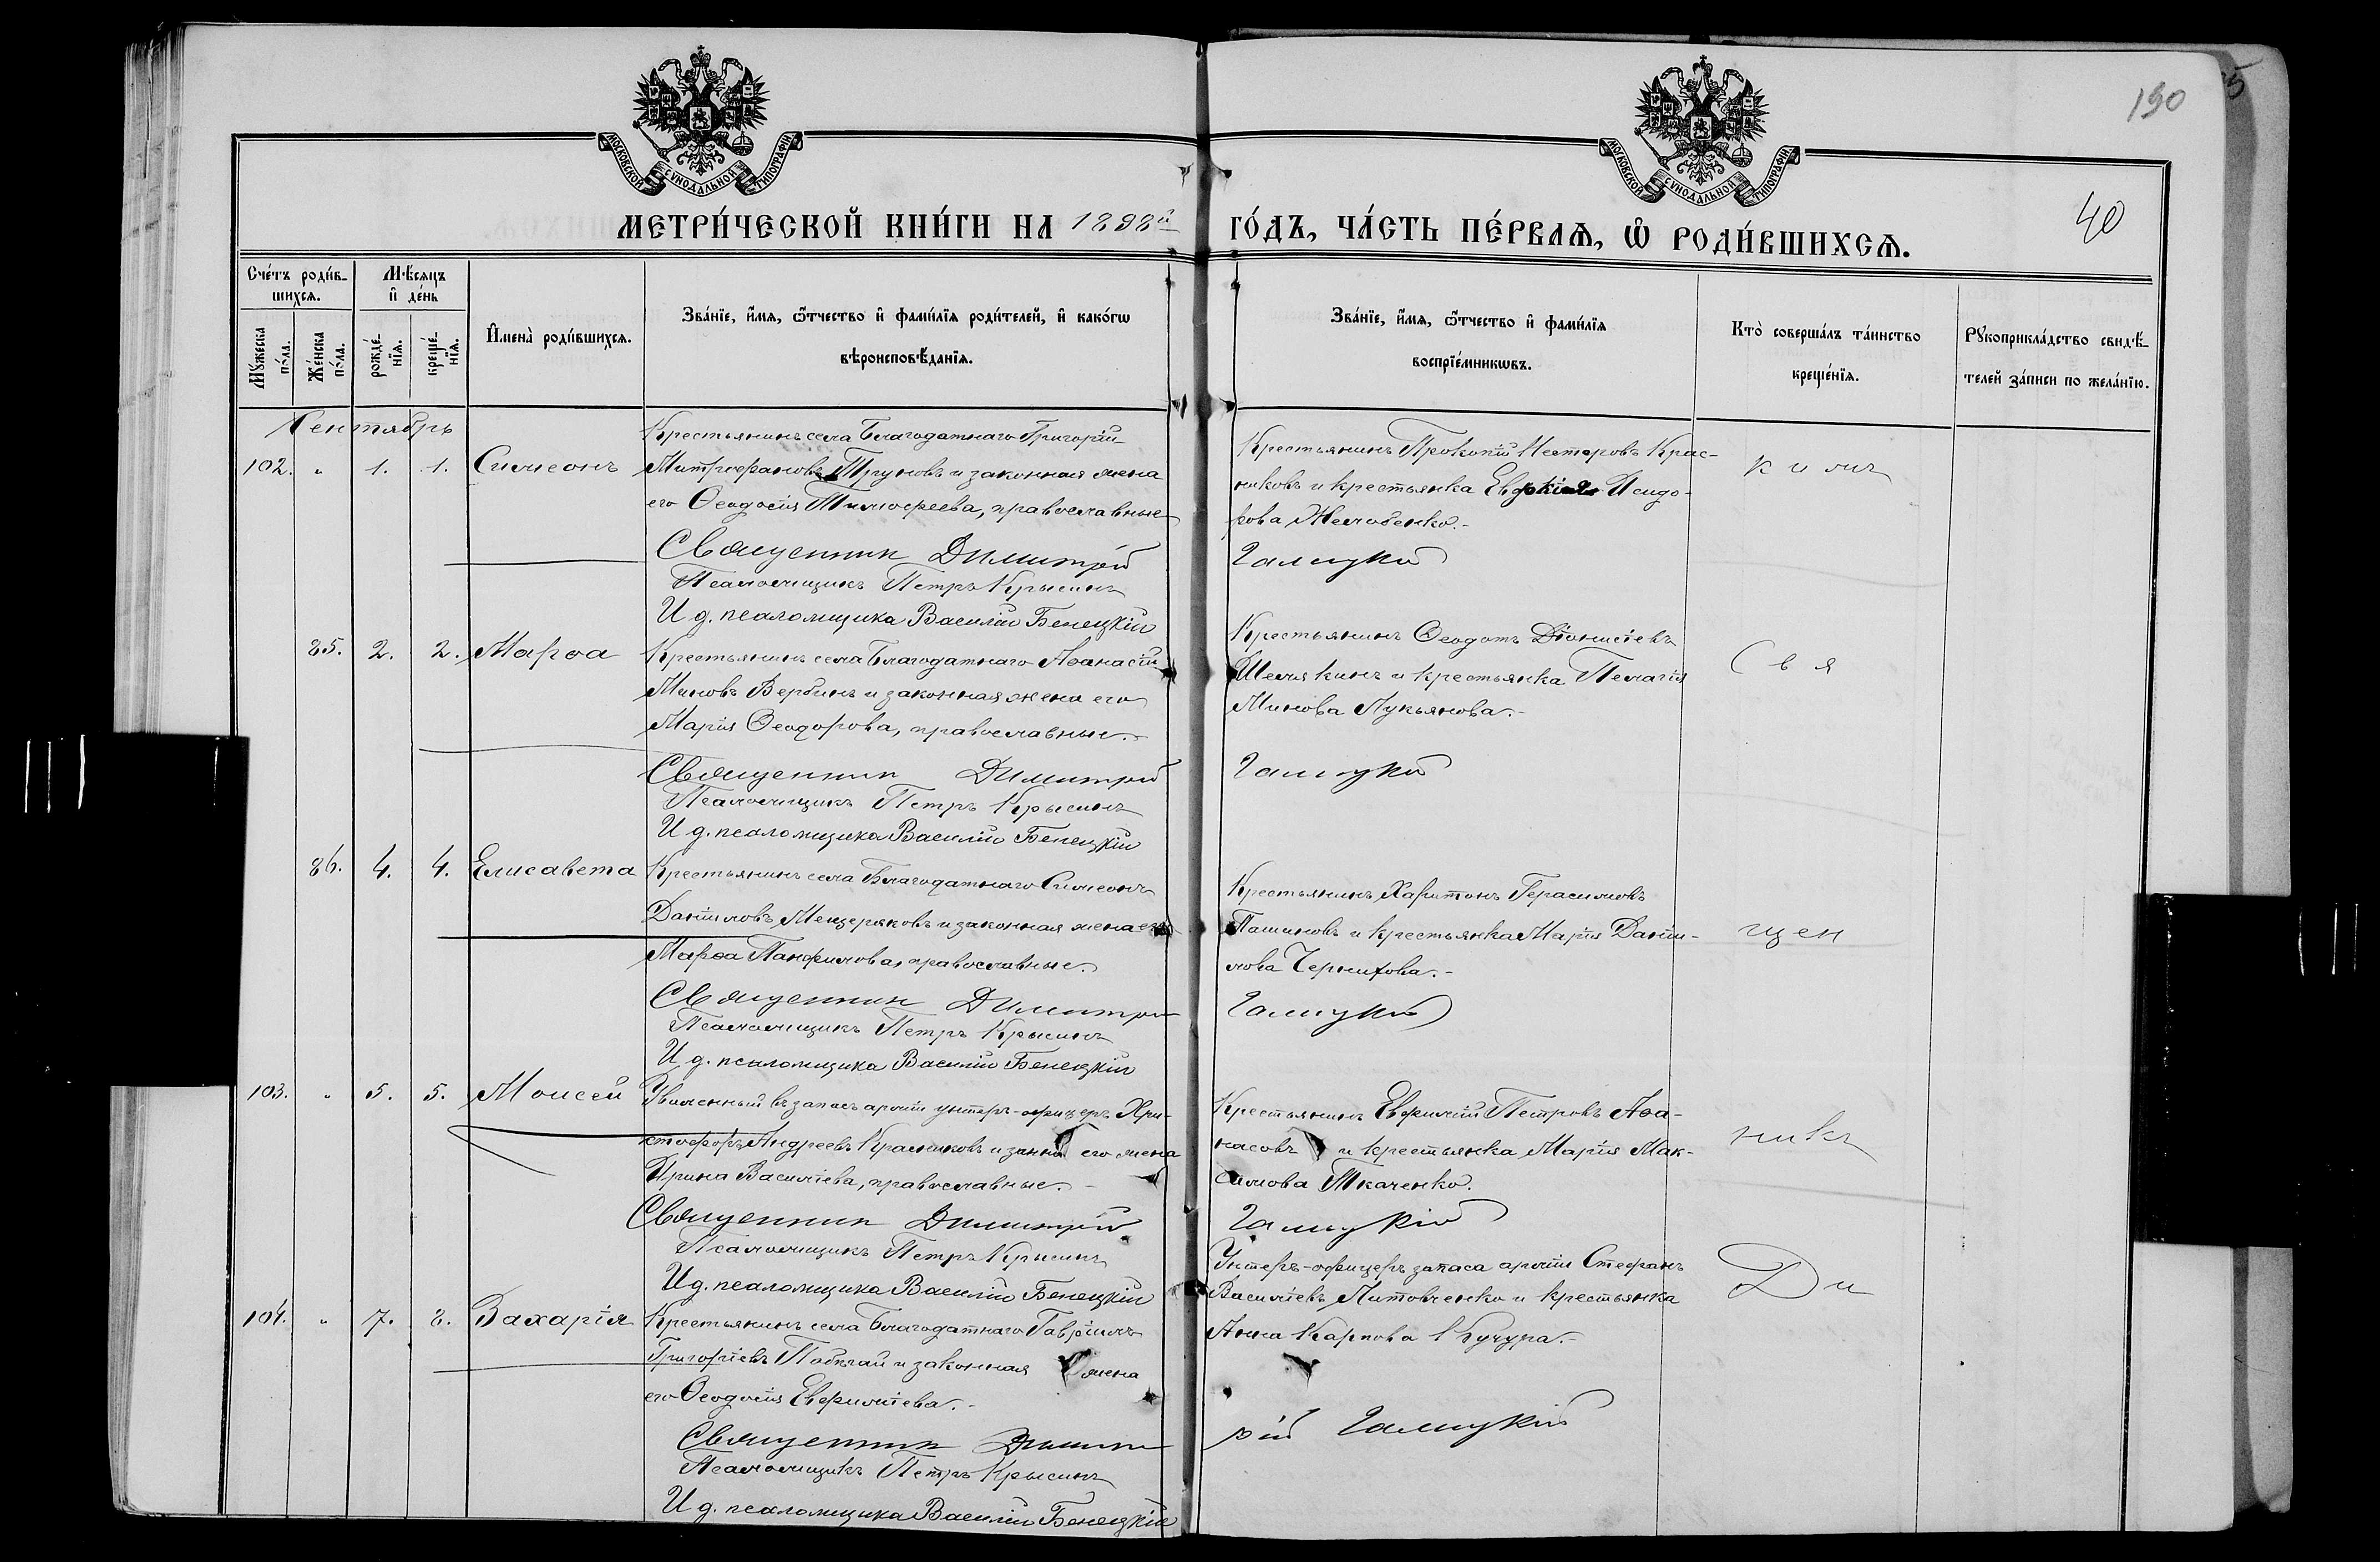 190
5
МОСКОВСКОЙ СѴНОДАЛЬНОЙ ТИПОГРАФІИ
МОСКОВСКОЙ СѴНОДАЛЬНОЙ ТИПОГРАФІИ
40
МЕТРИ́ЧЕСКОЙ КНИ́ГИ НА 1898й ГО́ДЪ, ЧА́СТЬ ПЕ́РВАѦ, Ѽ РОДИ́ВШИХСѦ.
Сче́тъ роди́в-
шихсѧ.
Мѣ́сяцъ
и҆ де́нь
Мꙋ́жеска по́ла.
Же́нска по́ла.
рожде́-нїѧ.
креще́-нїѧ.
И҆мена̀ роди́вшихсѧ.
Зва́нїе, и҆́мѧ, ѻ҆́тчество и҆ фами́лїѧ роди́телей, и҆ како́гѡ
вѣроисповѣ́данїѧ.
Зва́нїе, и҆́мѧ, ѻ҆́тчество и҆ фами́лїѧ
воспрїе́мникѡвъ.
Кто̀ соверша́лъ та́инство
креще́нїѧ.
Рꙋкоприкла́дство свидѣ́-
телей за́писи по жела́нїю.
Сентябрь
102. „ 1. 1. Симеонъ
Крестьянинъ села Благодатнаго Григорій
Митрофановъ Тргуновъ и законная жена
его Ѳеодосія Тимофеева, православные
Крестьянинъ Прокопій Нестеровъ Крас-
никовъ и крестьянка Исидо-
рова
кимъ
Священник Димитрій Галицкій
Псаломщикъ Петръ Крысинъ
И д. псаломщика Василій Бенецкій
85. 2. 2. Марѳа
Крестьянинъ села Благодатнаго Аѳанасій
Миновъ Вербинъ и законная жена его
Марія Ѳеодорова, православные.
Крестьянинъ Ѳеодотъ Діонисіевъ
Шемякинъ и крестьянка Пелагія
Минова Лукьянова.
Свя
Священник Димитрій Галицкій
Псаломщикъ Петръ Крысинъ
И д. псаломщика Василій Бенецкій
86. 4. 4. Елисавета
Крестьянинъ села Благодатнаго Симеонъ
Даніиловъ Мещеряковъ и законная жена его
Марѳа Панфилова, православные.
Крестьянинъ Харитонъ Герасимовъ
Пашиновъ и крестьянка Марія Даніи-
лова Чернихова.
щен
Священник Димитрій Галицкій
Псаломщикъ Петръ Крысинъ
И д. псаломщика Василій Бенецкій
103. „ 5. 5. Моисей
Уволенный въ запасъ арміи унтеръ-офицеръ Хри-
стофоръ Андреевъ Красниковъ и его жена
Ирина Василіева, православные.
Крестьянинъ Евфимій Петровъ Аѳа-
насовъ и крестьянка Марія Мак-
симова Ткаченко.
никъ
Священник Димитрій Галицкій
Псаломщикъ Петръ Крысинъ
И д. псаломщика Василій Бенецкій
104. „ 7. 8. Захарія
Крестьянинъ села Благодатнаго Гавріилъ
Григоріевъ и законная жена
его Ѳеодосія Евфиміева.
Унтеръ-офицеръ запаса арміи Стефанъ
Василіевъ Литовченко и крестьянка
Анна Карпова Кучура.
Ди
Священник Димитрій Галицкій
Псаломщикъ Петръ Крысинъ
И д. псаломщика Василій Бенецкій